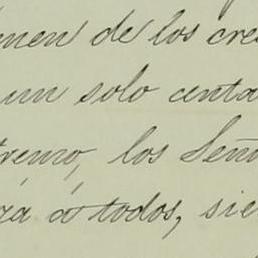 men de los cre
un solo centa
tremo, los Señ
zá á todos, sie